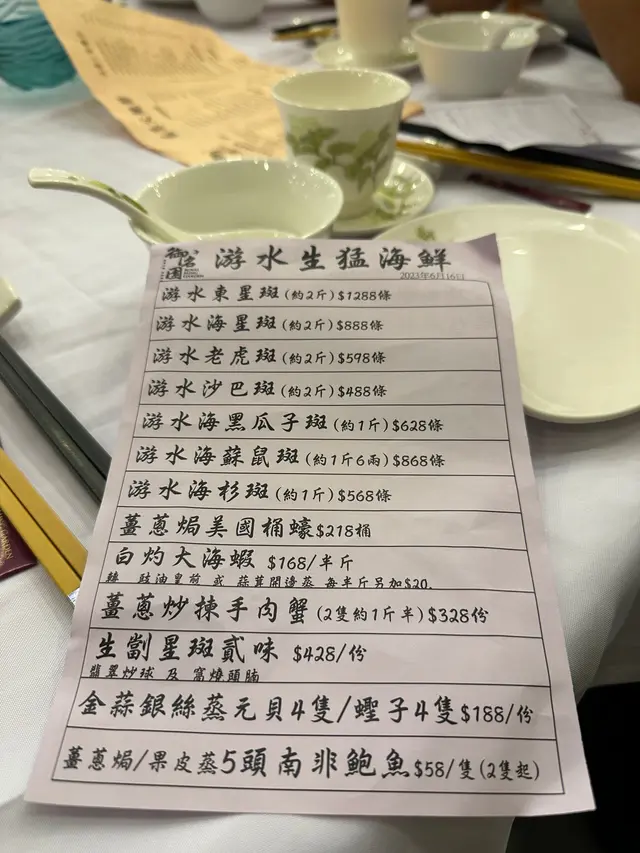 游水生猛海鮮
2023年6月16日
游水東星斑 (約2斤) $1288條
游水海星斑 (約2斤) $888條
游水老虎斑 (約2斤) $598條
游水沙巴斑 (約2斤) $488條
游水海黑瓜子斑 (約1斤) $628條
游水海蘇鼠斑 (約1斤6兩) $868條
游水海杉斑 (約1斤) $568條
薑蔥焗美國桶蠔$218桶
白灼大海蝦 $168/半斤
豉油皇煎 或 蒜茸開邊蒸 每半斤另加$20.
薑蔥炒揀手肉蟹 (2隻約1斤半) $328份
生劏星斑貳味 $428/份
翡翠炒球 及 窩燒頭腩
金蒜銀絲蒸元貝4隻/蟶子4隻$188/份
薑蔥焗/果皮蒸5頭南非鮑魚$58/隻(2隻起)